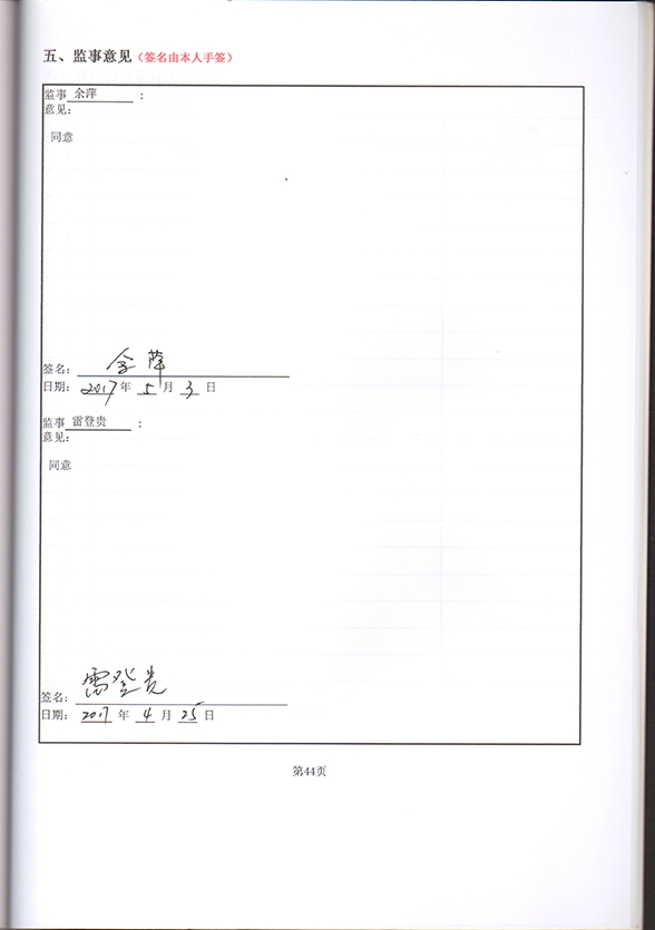 五、监事意见（签名由本人手签）
监事 余萍 ：
意见：
同意
签名： 余萍
日期： 2017 年 5 月 3 日
监事 雷登贵 ：
意见：
同意
签名： 雷登贵
日期： 2017 年 4 月 25 日
第44页